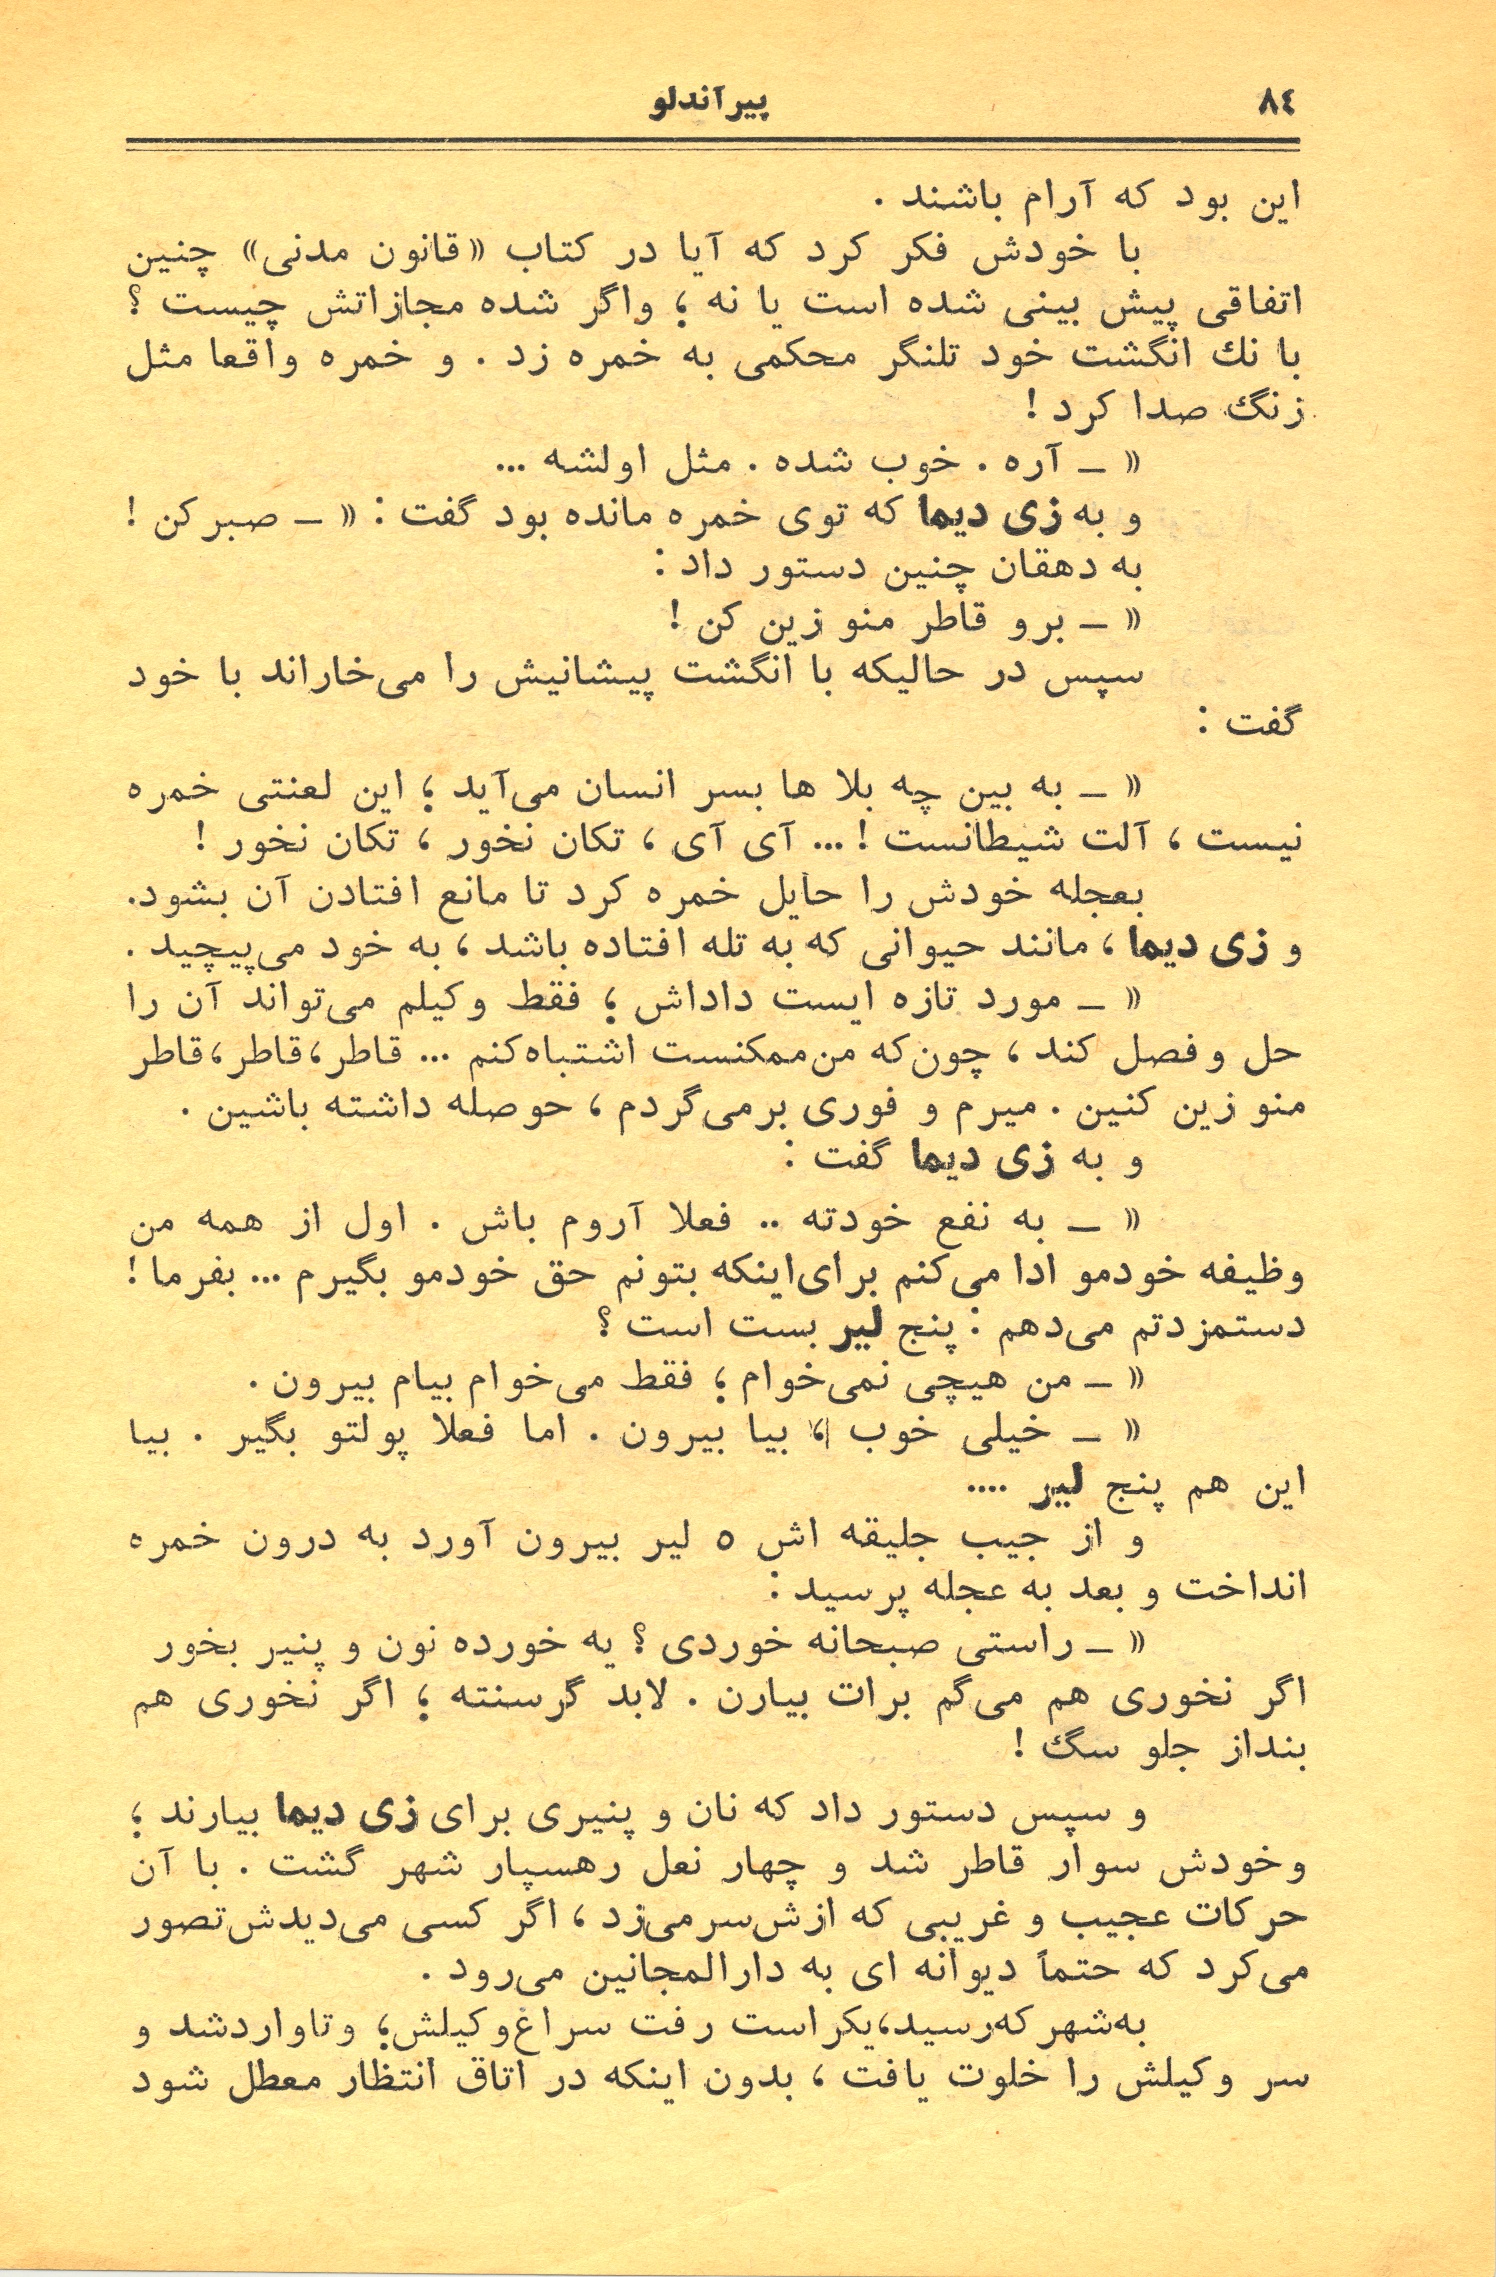 ٨٤
پیرآندلو
این بود که آرام باشند .
با خودش فکر کرد که آیا در کتاب «قانون مدنی» چنین
اتفاقی پیش بینی شده است یا نه ؛ واگر شده مجازاتش چیست ؟
با نك انگشت خود تلنگر محکمی به خمره زد . و خمره واقعا مثل
زنگ صدا کرد !
« ــ آره . خوب شده . مثل اولشه ...
و به زی دیما که توی خمره مانده بود گفت : « ــ صبر کن !
به دهقان چنین دستور داد :
« ــ برو قاطر منو زین کن !
سپس در حالیکه با انگشت پیشانیش را می‌خاراند با خود
گفت :
« ــ به بین چه بلا ها بسر انسان می‌آید ؛ این لعنتی خمره
نیست ، آلت شیطانست ! ... آی آی ، تکان نخور ، تکان نخور !
بعجله خودش را حایل خمره کرد تا مانع افتادن آن بشود.
و زی دیما ، مانند حیوانی که به تله افتاده باشد ، به خود می‌پیچید .
« ــ مورد تازه ایست داداش ؛ فقط وکیلم می‌تواند آن را
حل و فصل کند ، چون‌که من‌ممکنست اشتباه‌کنم ... قاطر،قاطر،قاطر
منو زین کنین . میرم و فوری برمی‌گردم ، حوصله داشته باشین .
و به زی دیما گفت :
« ــ به نفع خودته .. فعلا آروم باش . اول از همه من
وظیفه خودمو ادا می‌کنم برای‌اینکه بتونم حق خودمو بگیرم ... بفرما !
دستمزدتم می‌دهم : پنج لیر بست است ؟
« ــ من هیچی نمی‌خوام ؛ فقط می‌خوام بیام بیرون .
« ــ خیلی خوب ، بیا بیرون . اما فعلا پولتو بگیر . بیا
این هم پنج لیر ....
و از جیب جلیقه اش ٥ لیر بیرون آورد به درون خمره
انداخت و بعد به عجله پرسید :
« ــ راستی صبحانه خوردی ؟ یه خورده نون و پنیر بخور
اگر نخوری هم می‌گم برات بیارن . لابد گرسنته ؛ اگر نخوری هم
بنداز جلو سگ !
و سپس دستور داد که نان و پنیری برای زی دیما بیارند ؛
وخودش سوار قاطر شد و چهار نعل رهسپار شهر گشت . با آن
حرکات عجیب و غریبی که ازش‌سرمی‌زد ، اگر کسی می‌دیدش‌تصور
می‌کرد که حتماً دیوانه ای به دارالمجانین می‌رود .
به‌شهر که‌رسید،یکراست رفت سراغ‌وکیلش؛ وتاواردشد و
سر وکیلش را خلوت یافت ، بدون اینکه در اتاق انتظار معطل شود